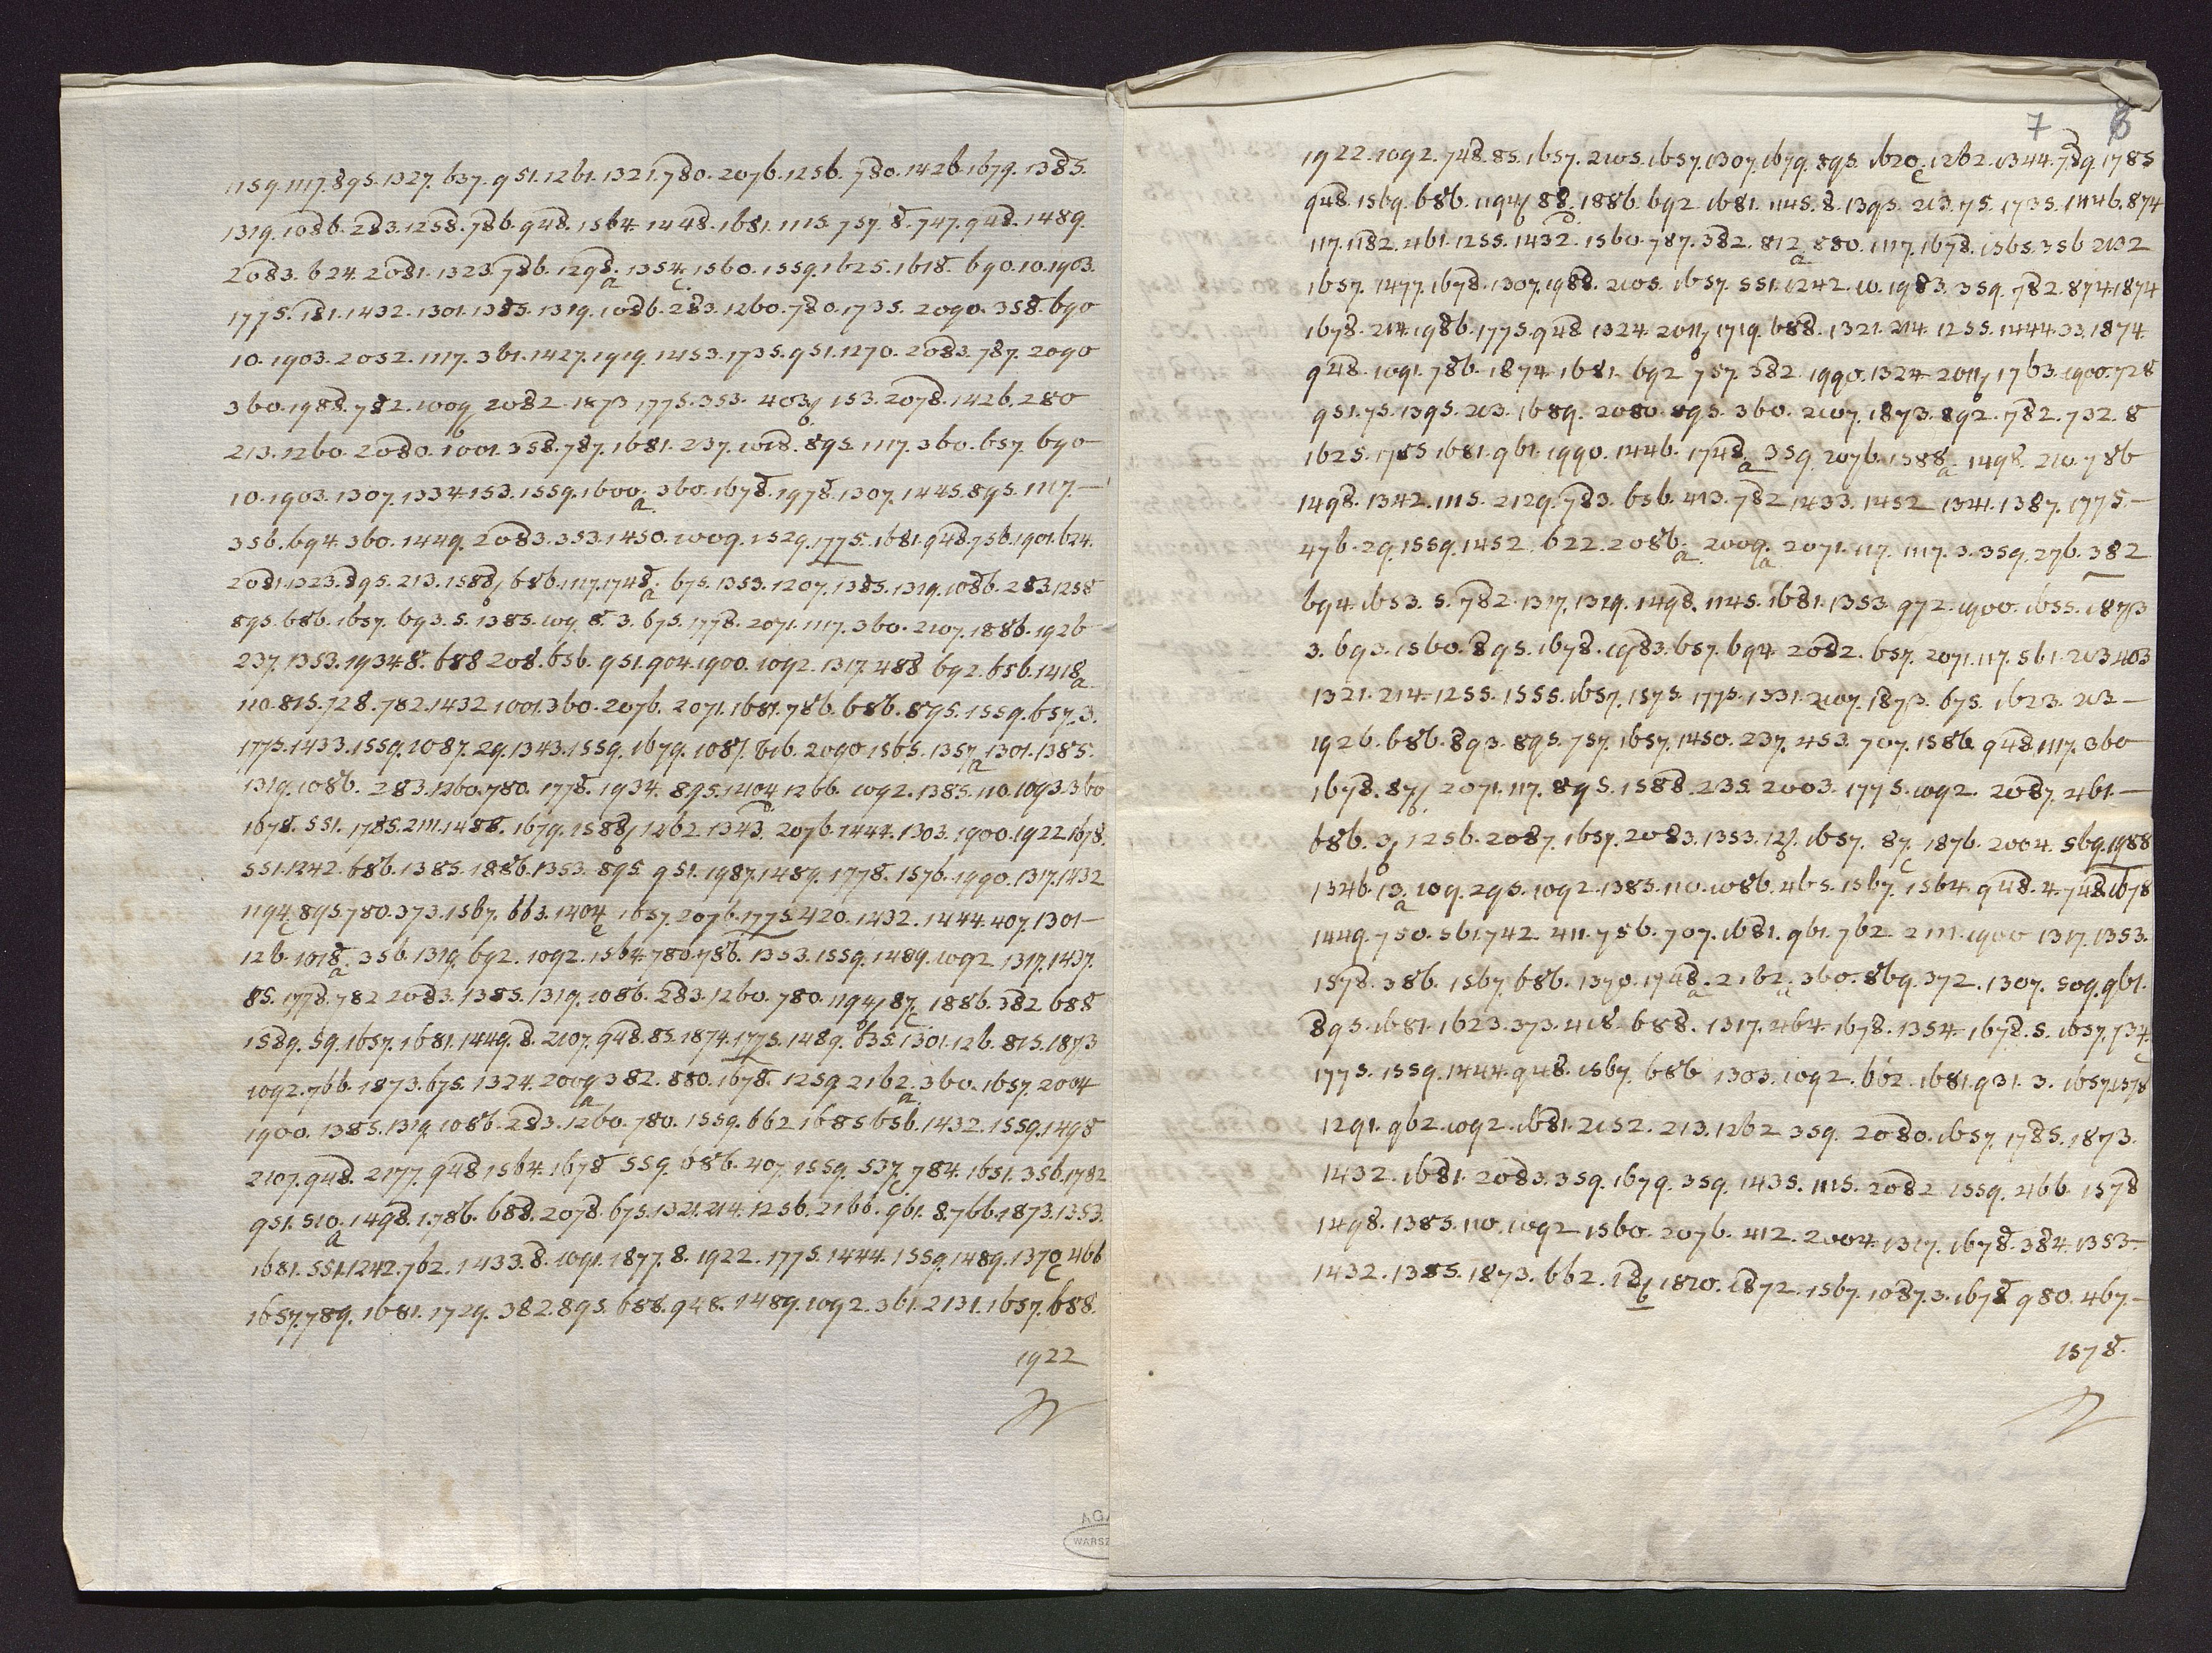 1159.1117.895.1327.637.951.1261.1321.780.2076.1256.780.1426.1679.1385.
1319.1086.283.1258.786.948.1564.1448.1681.1115.757.8.747.948.1489.
2083.624.2081.1323.786.1298.a.1354.c.1560.1559.1625.1618.690.10.1903.
1775.181.1432.1301.1385.1319.1086.283.1260.780.1735.2090.358.690
10.1903.2052.1117.361.1427.1919.1453.1735.951.1270.2083.787.2090
360.1988.782.1009 b 2082.1873 1775.353.403 b 153.2078.1426.280
213.1260.2080.1001.358.787.1681.237.1018.895.1117.360.657.690
10.1903.1307.1334.153.1559.1600.a.360.1678.1978.1307.1445.895.1117.—
356.694.360.1449.2083.353.1450.1009.1529.1775.1681.948.756.1901.624.
2081.1323.895.213.1588 b 686.1117.1748.a 675.1353.1207.1385.1319.1086.283.1258
895.686.1657.693.5.1385.109.8.3.675.1778.2071.117.360.2107.1886.1926
237.1353.1934.8.688.208.656.951.904.1900.1092.1317.488 692.656.1418 a
110.815.728.782.1432 1001.360.2076.2071.1681.786.686.895.1559.657.3.
1775.1433.1559.1087.29.1343.1559.1679.1087.616.2090.1565.1357 a 1301.1385.
1319.1086.283.1260.780.1778.1934.895.1404 1266.1092.1385.110.1093.360
1678.551.1785.2111.1488.1679.1588 b 1262.1343.2076.1444.1303.1900.1922.1678.
551.1242.686.1385.1886.1353.895.951.1987.1489.1778.1576.1990.1317.1432
1194 c 895.780.373.1567.663.1404 c 1657.2076.1775.420.1432.1444.407.1301—
126.1018 a 356.1319.692.1092.1564.780.786.1353.1559.1489.1092 1317.1437.
85.1778.782 2083.1385.1319.1086.283.1260.780.1194 b 87 c 1886.382 688
1589.59.1657.1681.1449.8.2107.948.85.1874.1775.1489.635.1301.126.815.1873
1092.766.1873.675.1324.2009 a 382.880.1678.1259 2162.a 360.1657.2004
1900.1385.1319.1086.283.1260.780.1559.662 1685 656.1432.1559.1498
2107.948.2177.948 1564.1678 559.686.407.1559.537 c 784.1651.356.1782
951.510 a.1498.1786.688.2078.675.1321.214.1256.2166.961.8.766.1873.1353.
1681.551.1242.762.1433.8.1091.1877.8.1922.1775.1444.1559.1489.1370 c 466
1657.789.1681.1729.382.895.688.948.1489.1092.361.2131.1657.688.
1922
7 8
1922.1092.748.85.1657.2105.1657.1307.1679.895.1620 c 1262.1344.789.1785
948.1569.686.1194 b 88.1886.692 1681.1145.8.1395.213.75.1735.1446.874
117.1182.461.1255.1432.1560.787.382.812 a 880.1117.1678.1565.356 2132
1657.1477.1678.1307.1988.2105.1657.551.1242.10.1983.359.782.874.1874
1678.214.1986.1775.948 1324.2011 b 1719.688.1321.214.1255.1444.33.1874.
948.1091.786.1874.1681.692 757.382.1990.1324 2011 b 1763.1900.728
951.75.1395.213.1689.2080.895.360.2107.1873.892.782.732.8
1625.1785 1681.961.1990.1446.1748 a 359.2076.1588 a 1498.210.786
1498.1342.1115.2129.783.656.413.782 1433.1452 1341.1387.1775.—
476.29.1559.1452.622.2086.a.2009.a.2071.117.1117.3.359.276.382
694.1653.5.782.1317.1329.1498.1145.1681.1353.972.1900.1655.1873
3.693.1560.895.1678.1983.657.694 2082.657.2071.117.561.213.403
1321.214.1255.1555.1657.1575.1775.1331.2107.1873.675.1623.213—
1926.686.893.895.757.1657.1450.237.453.707.1586.948.1117.360
1678.87 b 2071.117.895.1588.235.2003.1775.1092.2087.461.—
686.3 b 1256.2087.1657.2083.1353.127.1657.87 c 1876.2004.569.1988
1346.13 a 109.295.1092.1385.110.1086.465.1567.1564.948.4.748.1678
1449.750.561.742.411.756.707.1681.961.762.2111.1900 1317.1353.
1578.386.1567.686.1370.1748 a.2162.a 360.869.372.1307.509.961.
895.1681.1623.373.418.688.1317.464.1678.1354.1678.5.1657.734 c
1775.1559.1444.948.1567.686 1303.1092.662.1681.931.3.1657.1578
1291.962.1092.1681.2152.213.1262 359.2080.1657.1785.1873.
1432.1681.2083.359.1679.359.1435.1115.2082.1559.266.1578
1498.1385.110.1092 1560.2076.412.2004.1317.1678.384.1353.
1432.1385.1873.662.18 b 1820.1872.1567.1087.3.1678 980.467.—
1578.
AGA
WARSZ